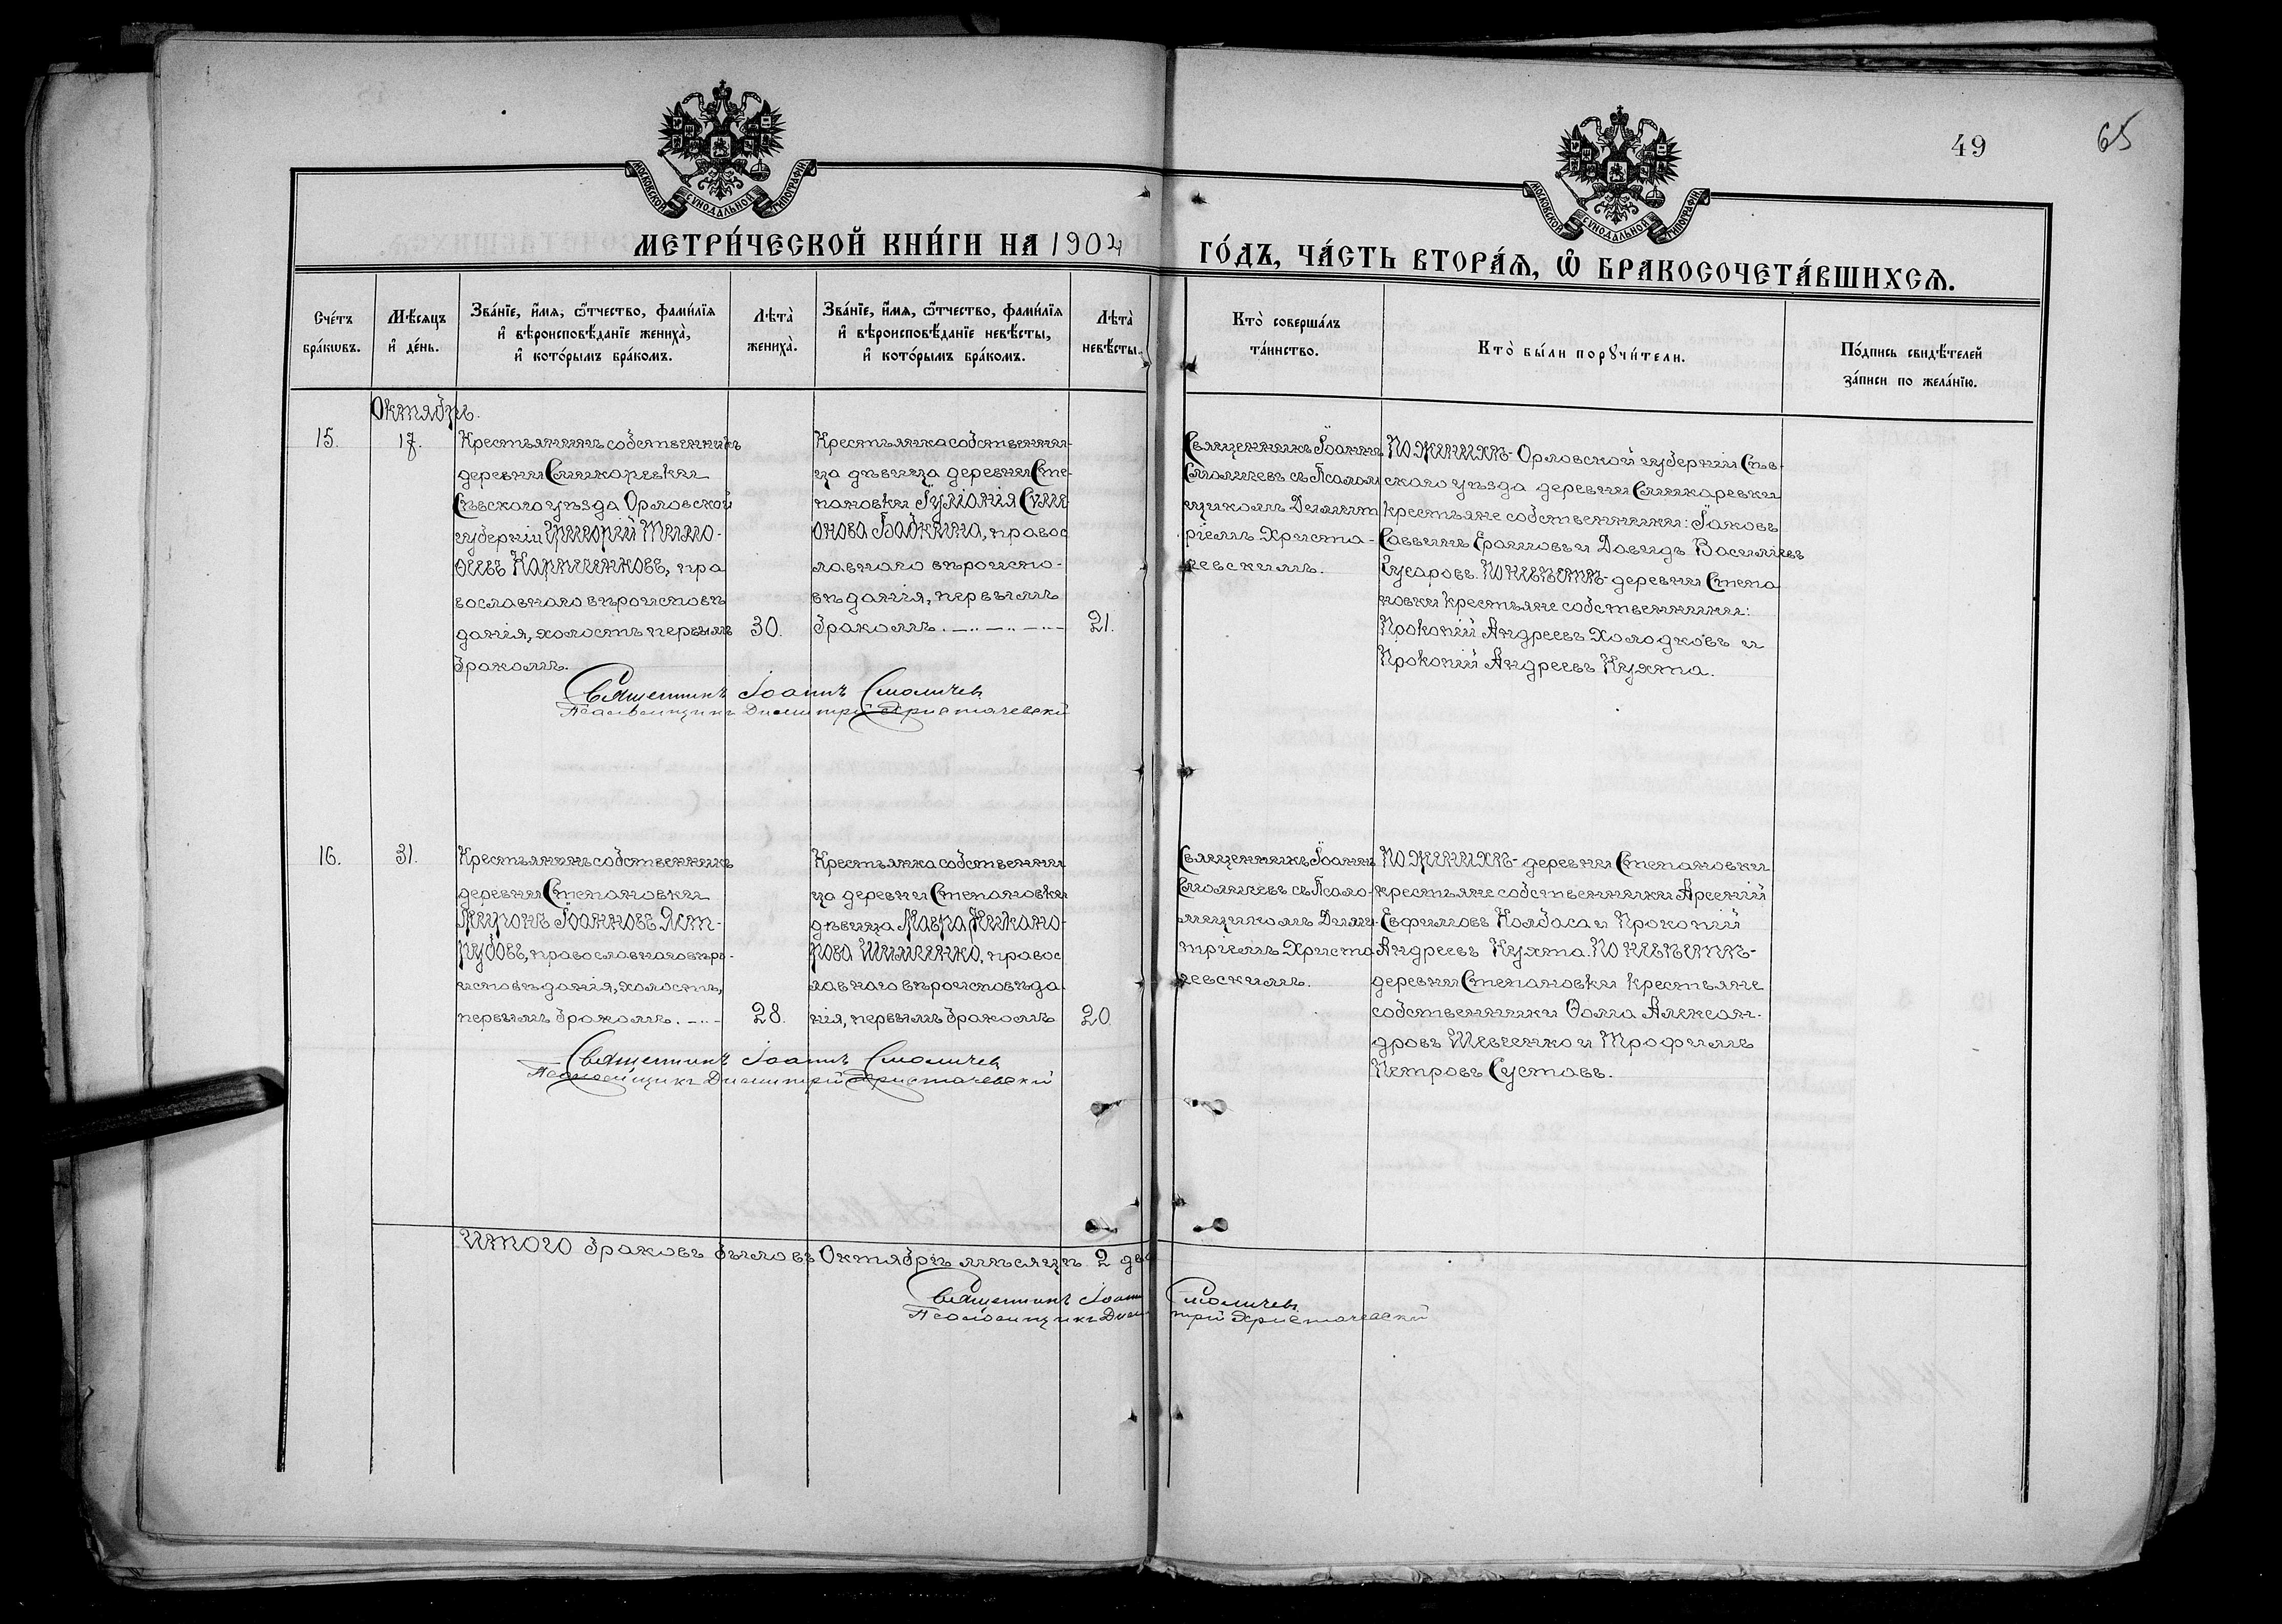 49
65
МОСКОВСКОЙ СѴНОДАЛЬНОЙ ТИПОГРАФІИ
МОСКОВСКОЙ СѴНОДАЛЬНОЙ ТИПОГРАФІИ
МЕТРИ́ЧЕСКОЙ КНИ́ГИ НА 1904 ГО́ДЪ, ЧА́СТЬ ВТОРА́Ѧ, Ѽ БРАКОСОЧЕТА́ВШИХСѦ.
Сче́тъ
бра́кѡвъ.
Мѣ́сяцъ
и҆ де́нь.
Зва́нїе, и҆́мя, ѻ҆́тчество, фами́лїя
и҆ вѣроисповѣ́данїе жениха̀,
и҆ кото́рымъ бра́комъ.
Лѣта̀
жениха̀.
Зва́нїе, и҆́мя, ѻ҆́тчество, фами́лїя
и҆ вѣроисповѣ́данїе невѣ́сты,
и҆ кото́рымъ бра́комъ.
Лѣта̀
невѣ́сты.
Кто̀ соверша́лъ
та́инство.
Кто̀ бы́ли порꙋчи́тели.
По́дпись свидѣ́телей
за́писи по жела́нїю.
Октябрь.
15.
17.
Крестьянинъ собственникъ
деревни Слинкаревки
Сѣвскаго уѣзда Орловской
губерніи Григорій Тимо-
ѳеевъ Карпченковъ, пра
вославнаго вѣроисповѣ
данія, холостъ первымъ
бракомъ.
30.
Крестьянка собственни-
ца дѣвица деревни Сте-
пановки Іуліанія Сими
онова Бабкина, правос
лавнаго вѣроиспо-
вѣданія, первымъ
бракомъ.
21.
Священникъ Іоаннъ
Смоличевъ съ Псалом
щикомъ Димит
ріемъ Христа-
чевскимъ.
По женихѣ- Орловской губерніи Сѣв-
скаго уѣзда деревни Слинкаревки
крестьяне собственники: Іаковъ
Саввинъ Ерашовъ и Давидъ Васильевъ
Гусаровъ. По невѣстѣ- деревни Степа
новки крестьяне собственники:
Прокопій Андреевъ Холодковъ и
Прокопій Андреевъ Кухта.
Священникъ Іоаннъ Смоличевъ
Псаломщикъ Димитрій Христачевскій
16.
31.
Крестьянинъ собственникъ
деревни Степановки
Миронъ Іоанновъ Яст-
рубовъ, православнаго вѣро-
исповѣданія, холостъ,
первымъ бракомъ.
28.
Крестьянка собственни
ца деревни Степановки
дѣвица Мавра Никано-
рова Шимченко, правос
лавнаго вѣроисповѣда
нія, первымъ бракомъ
20.
Священникъ Іоаннъ
Смоличевъ съ Псало-
мщикомъ Дими-
тріемъ Христа
чевскимъ.
По женихѣ- деревни Степановки
крестьяне собственники Арсеній
Евфимовъ Колбаса и Прокопій
Андреевъ Кухта. По невѣстѣ-
деревни Степановки крестьяне
собственники Ѳома Алексан-
дровъ Шевченко и Трофимъ
Петровъ Суставъ.
Священникъ Іоаннъ Смоличевъ
Псаломщикъ Димитрій Христачевскій
Итого браковъ было въ Октябрѣ мѣсяцѣ 2 два
Священникъ Іоаннъ Смоличевъ
Псаломщикъ Димитрій Христачевскій